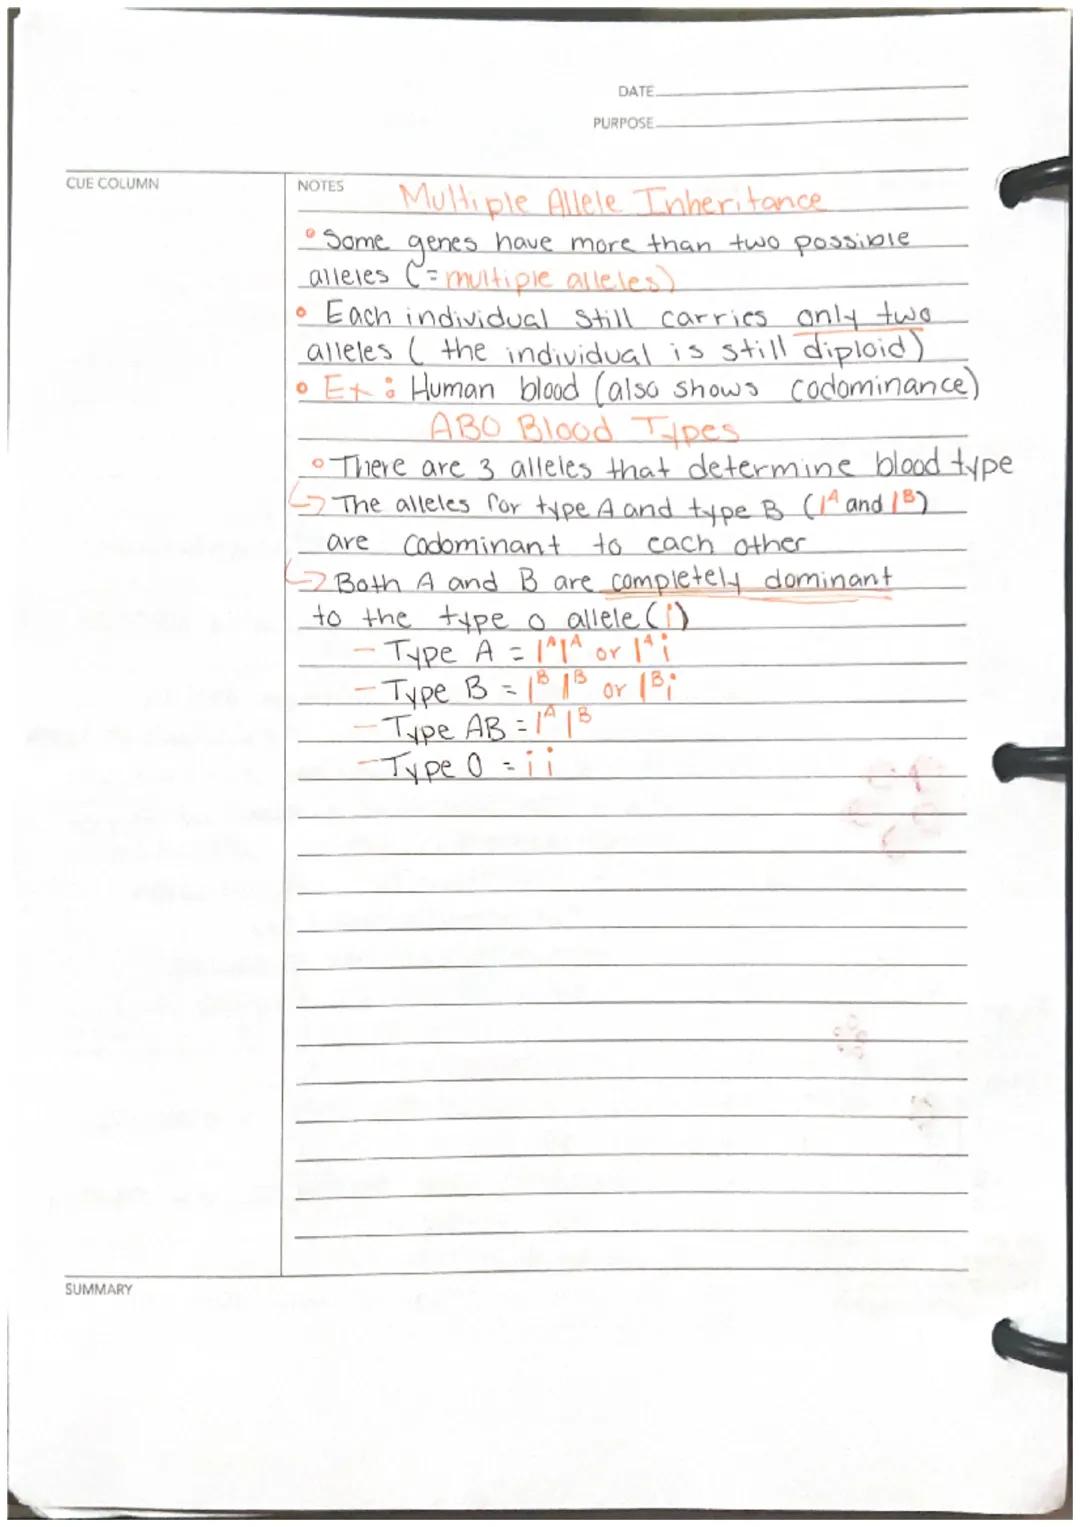 DATE
PURPOSE
CUE COLUMN
NOTES
Multiple Allele Inheritance
• Some genes have more than two possible
alleles (= multiple alleles)
• Each individual still carries only two
alleles ( the individual is still diploid)
• Ex: Human blood (also shows codominance)
ABO Blood Types
• There are 3 alleles that determine blood type
↳ The alleles for type A and type B (Iᴬ and Iᴮ)
are codominant to each other
↳ Both A and B are completely dominant
to the type o allele (i)
- Type A = IᴬIᴬ or Iᴬi
- Type B = IᴮIᴮ or Iᴮi
- Type AB = IᴬIᴮ
- Type O = ii
SUMMARY